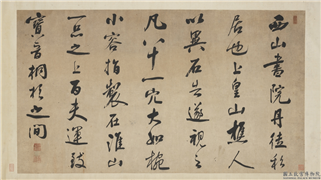 西山書院丹徒私
居也上皇山樵人
以異石告遂視之
凡八十一穴大如碗
小容指製在淮山
一品之上百夫運致
寶晉桐杉之間